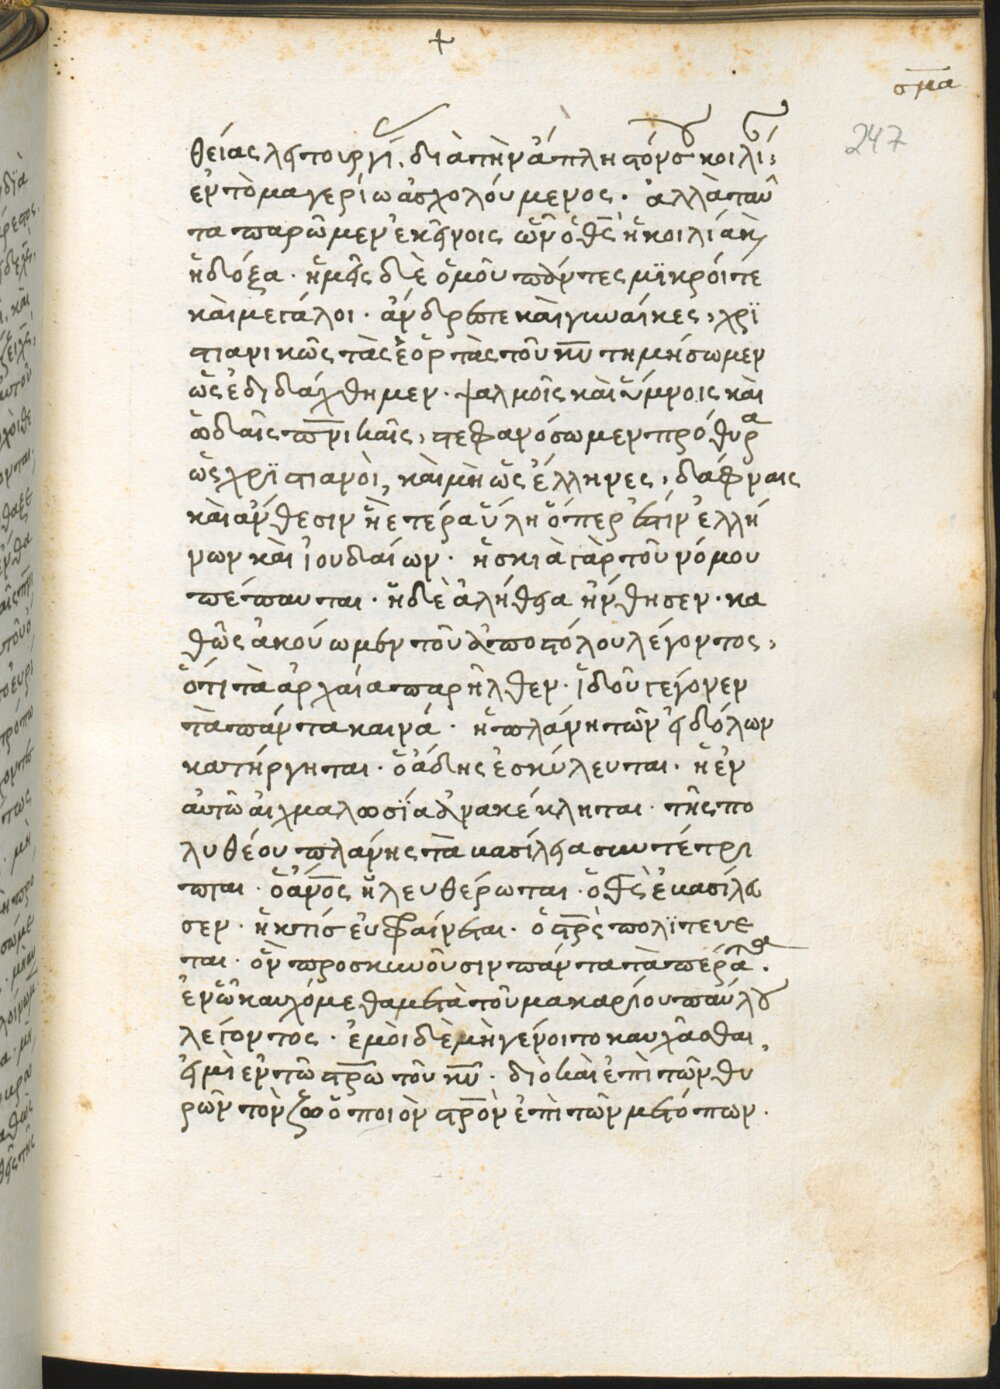 +
σμα
247
θείας λειτουργί. διὰ τὴν ἄπληστόν σου κοιλί:
εν τὸ μαγερίω ἀσχολούμενος. ἀλλὰ ταῦ
τα παρῶμεν ἐκείνοις ὧν ὁ θς ἡ κοιλία κὴ
ἡ δόξα. ἡμεῖς δὲ ὁμοῦ πάντες μϊκρόι τὲ
και μεγάλοι. άνδρες τε και γυναίκες, χρϊ
στιανικῶς τὰς ἑορτὰς τοῦ κυ τημήσωμεν
ὡς εδιδάχθημεν. ψαλμοῖς καὶ ὕμνοις και
ὠδαῖς πνικαῖς, στεφανόσωμεν πρόθυρα
ὡς χρϊστιανοὶ, καὶ μὴ ὡς έλληνες, δάφναις
και άνθεσιν ἢ ετέρα ὕλη ὅπερ ἐστὶν ελλή
νων καὶ ϊουδαίων. ἡ σκιὰ γὰρ τοῦ νόμου
πέπαυται. ἡ δὲ ἀλήθεια ήνθησεν. κα
θὼς ἀκούωμεν τοῦ ἀποστόλου λέγοντος,
ὅτι τὰ ἀρχαία παρῆλθεν. ϊδοῦ γεγονεν
τὰ πάντα καινά. ἡ πλάνη τῶν ειδόλων
κατήργηται. ὁ άδης ἐσκύλευται. ἡ ἐν
αυτῶ ἀιχμαλωσϊα ἀνακέκληται. τῆς πο
λυθέου πλάνης τὰ βασίλεια συντέτρι
πται. ὁ άνος ἠλευθέρωται. ὁ θς ἐβασίλευ
σεν. ἡ κτίσις ἐυφραίνεται. ὁ στρς πολϊτευε
ται. ὃν προσκυνοῦσιν πάντα τὰ πέρατα.
ἐν ᾧ καυχόμεθα μετὰ τοῦ μακαρίου παύλου
λεγοντος. ἐμὸι δὲ μὴ γένοιτο καυχᾶσθαι,
ει μὶ εν τῶ στρω τοῦ κυ. διὸ καὶ ἐπὶ τῶν θυ
ρῶν τὸν ζωὁποιὸν στρὸν ἐπὶ τῶν μετόπων.